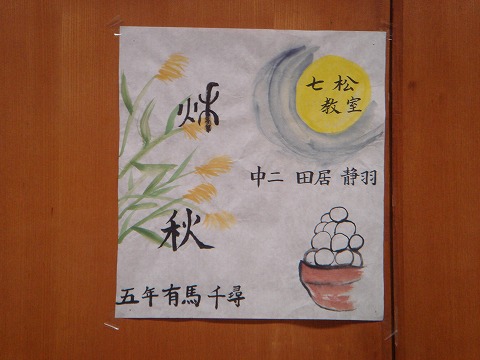 七松
教室
中二 田居 静羽
秌
秋
五年 有馬 千尋